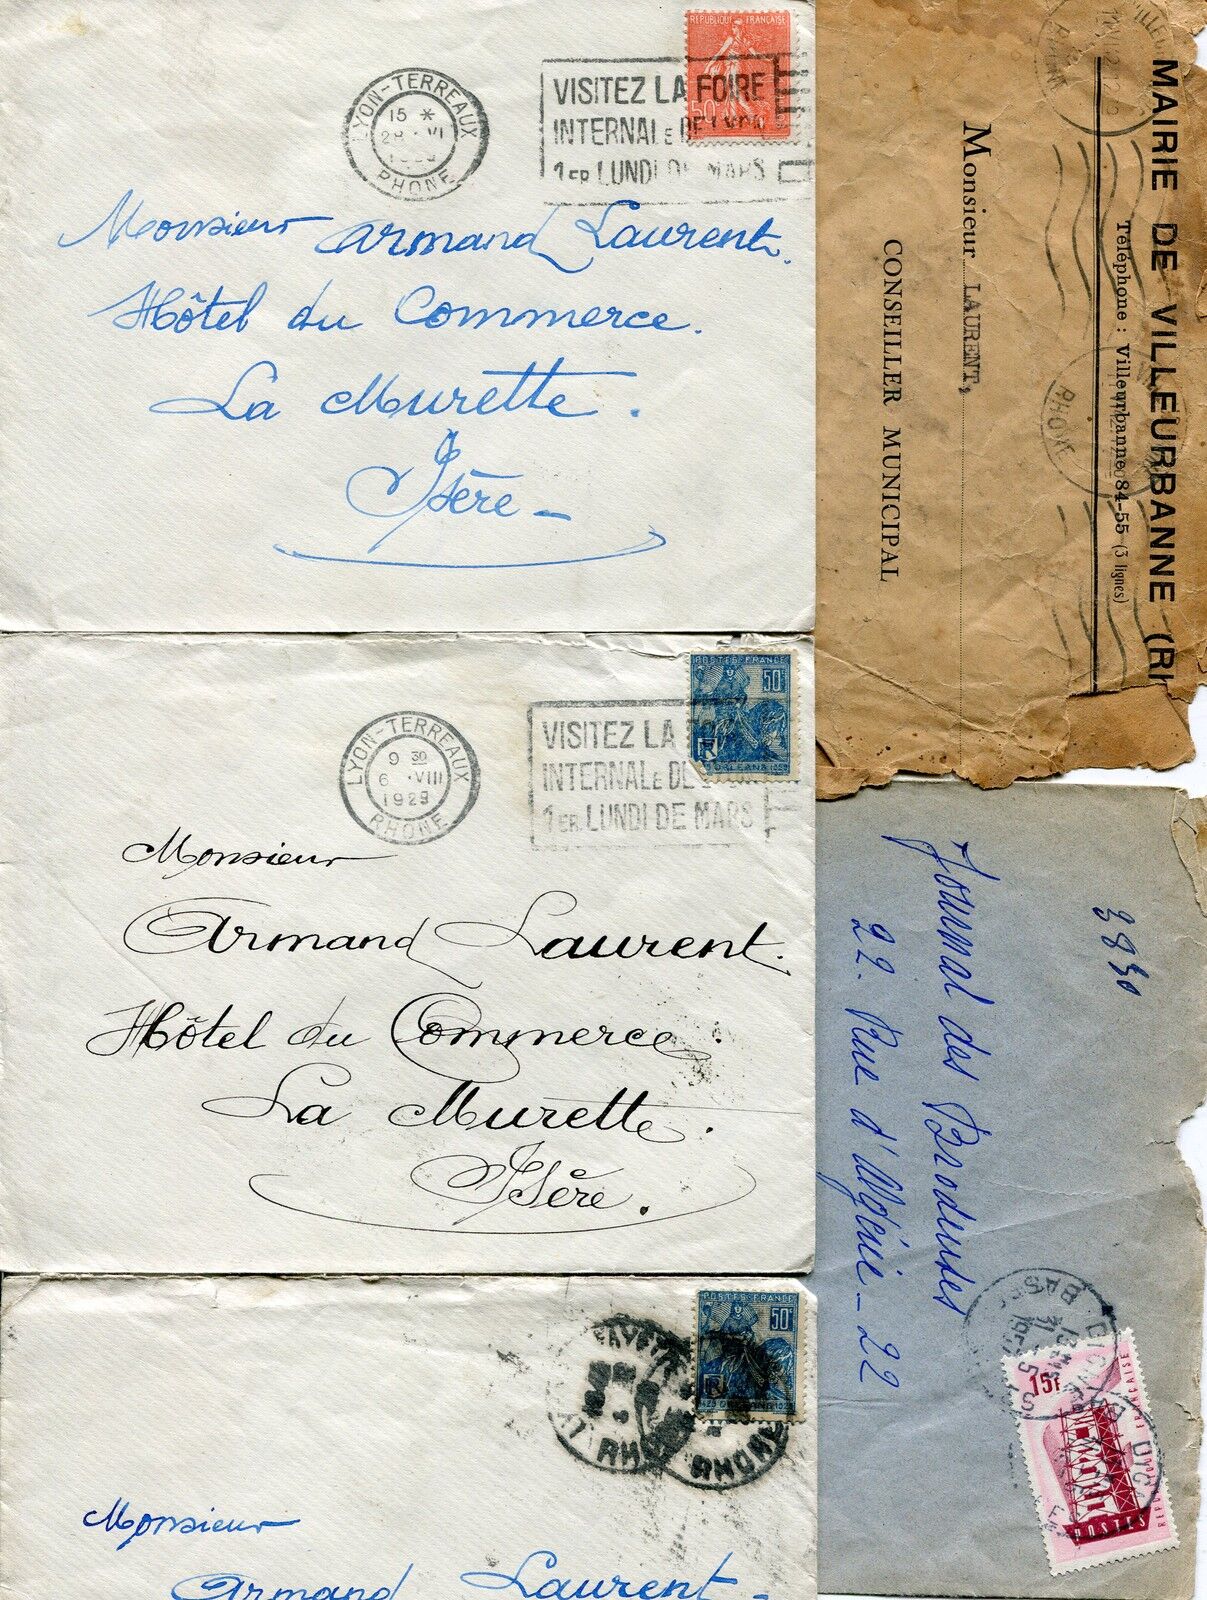 REPUBLIQUE FRANÇAISE
50c
LYON-TERREAUX
15 *
28 · VI
RHONE
VISITEZ LA FOIRE
INTERNALE DE LYON
1ER LUNDI DE MARS
Monsieur Armand Laurent.
Hôtel du Commerce.
La Murette.
Isère –
POSTES-FRANCE
50c
ORLEANS
LYON-TERREAUX
9 30
6 · VIII
1929
RHONE
VISITEZ LA
INTERNALE DE
1ER LUNDI DE MARS
Monsieur
Armand Laurent.
Hôtel du Commerce.
La Murette.
Isère.
POSTES-FRANCE
50c
1429 ORLEANS 1929
Monsieur
Armand Laurent –
MAIRIE DE VILLEURBANNE (RH
Téléphone : Villeurbanne 84-55 (3 lignes)
Monsieur LAURENT,
CONSEILLER MUNICIPAL
RHONE
3830
Journal des Brodeuses
22. Rue d'Algérie – 22
15F
POSTES
FRANÇAISE